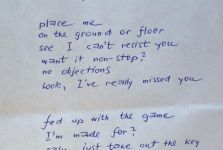 place me
on the ground or floor
see I can't resist you
want it non-stop?
no objections
look, I've really missed you
fed up with the game
I'm made for?
just take out the key